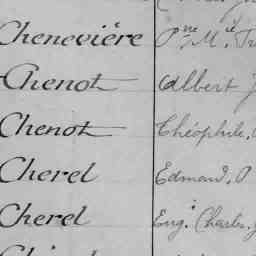 Chenevière Pne Mie
Chenot Albert
Chenot Théophile.
Cherel Edmond.
Cherel Eug. Charles.